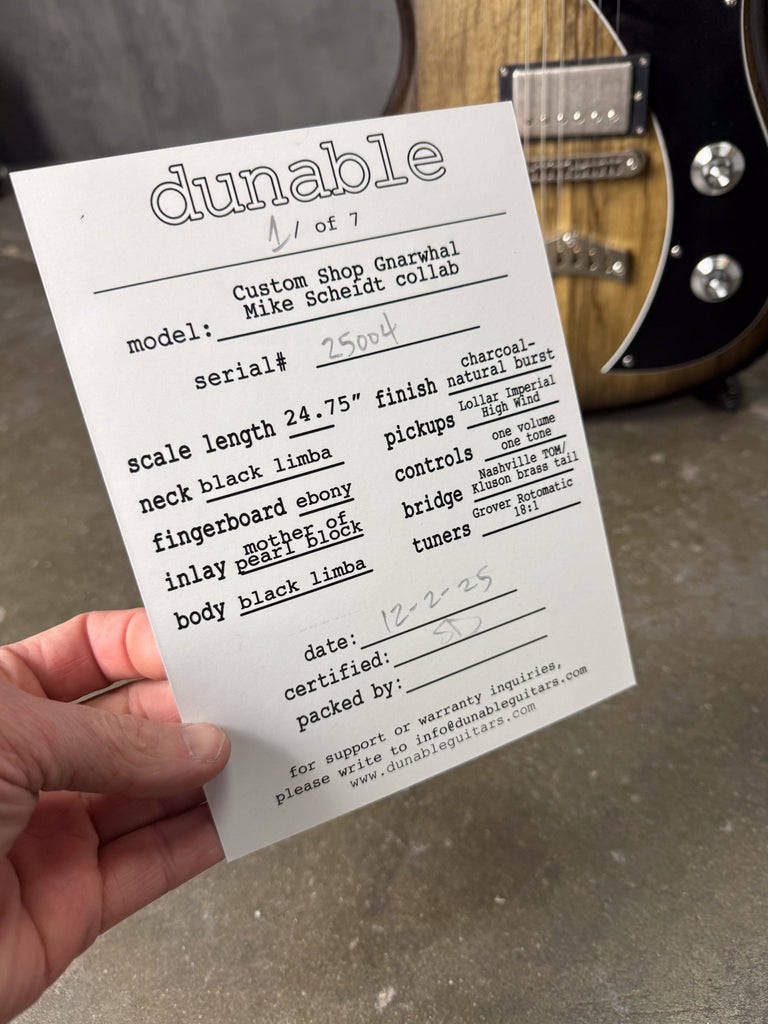 dunable
1/ of 7
model: Custom Shop Gnarwhal
Mike Scheidt collab
serial# 25004
scale length 24.75"
neck black limba
fingerboard ebony
inlay mother of
pearl block
body black limba
finish charcoal-
natural burst
pickups Lollar Imperial
High Wind
controls one volume
one tone
bridge Nashville TOM/
Kluson brass tail
tuners Grover Rotomatic
18:1
date: 12-2-25
certified: SD
packed by:
for support or warranty inquiries,
please write to info@dunableguitars.com
www.dunableguitars.com